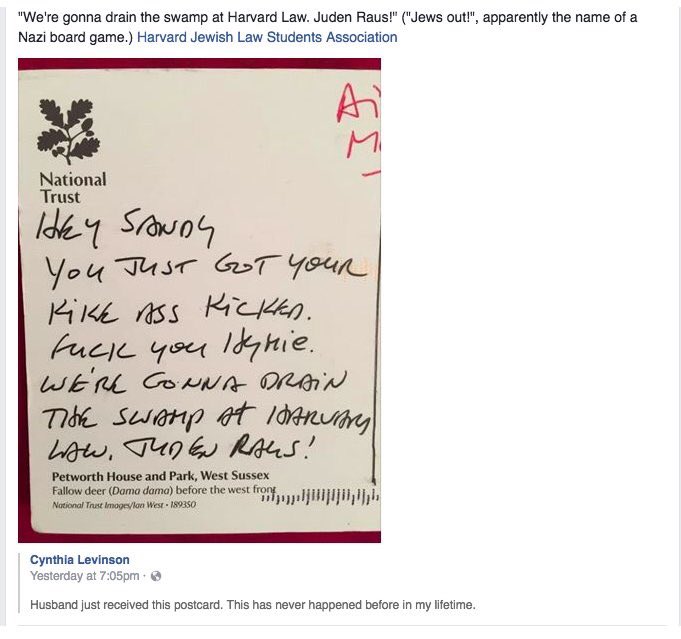 "We're gonna drain the swamp at Harvard Law. Juden Raus!" ("Jews out!", apparently the name of a
Nazi board game.) Harvard Jewish Law Students Association
Ai
M
National
Trust
HEY SANDY
YOU JUST GOT YOUR
KIKE ASS KICKED.
FUCK YOU HYMIE.
WE'RE GONNA DRAIN
THE SWAMP AT HARVARD
LAW. JUDEN RAUS!
Petworth House and Park, West Sussex
Fallow deer (Dama dama) before the west front
National Trust Images/Ian West • 189350
Cynthia Levinson
Yesterday at 7:05pm ·
Husband just received this postcard. This has never happened before in my lifetime.